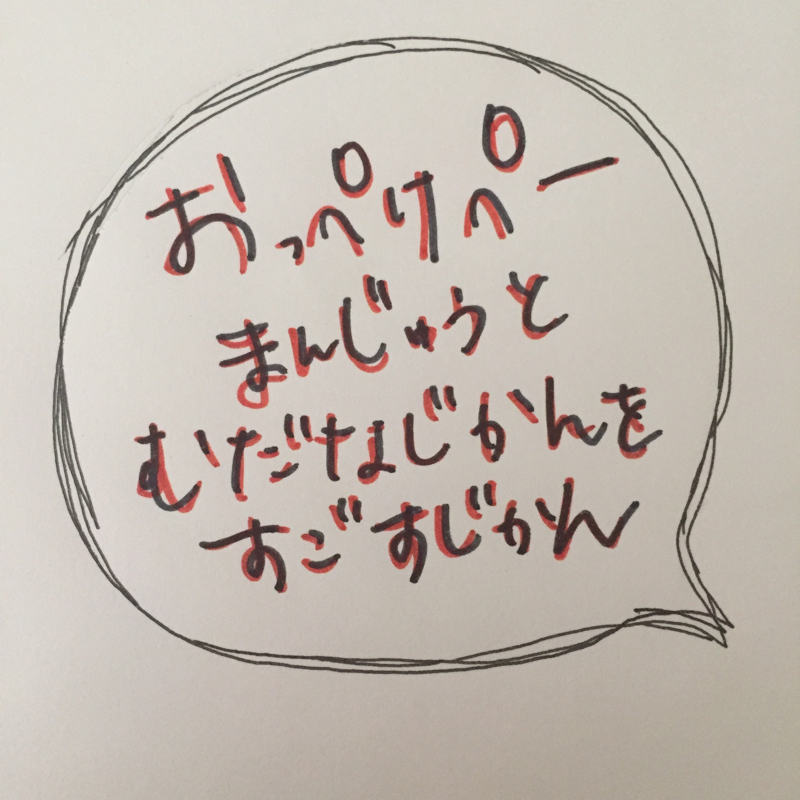 おっぺけぺー
まんじゅうと
むだなじかんを
すごすじかん